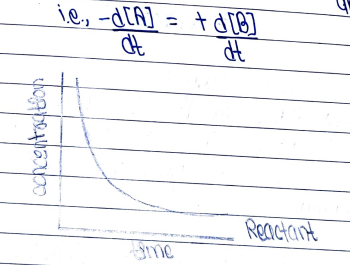 i.e., -d[A]/dt = + d[B]/dt
concentration
Reactant
time